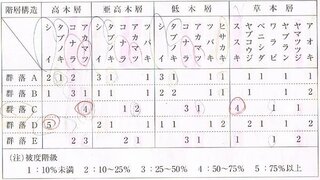 階層構造 高木層 亜高木層 低木層 草本層
シイ タブノキ コナラ アカマツ シイ タブノキ コナラ アカマツ ツバキ シイ タブノキ コナラ アカマツ ツバキ ヒサカキ ススキ ヤブコウジ ベニシダ ワラビ ヤブラン アオキ
群落A 2 1 2 3 1 1 2 2 1 1 1 1 1 1
群落B 3 1
群落C 4 1 2 3 1 4 1 1
群落D 5 2 1 1
群落E 2 3 2 1 3 1
(注)被度階級
1:10%未満 2:10~25% 3:25~50% 4:50~75% 5:75%以上